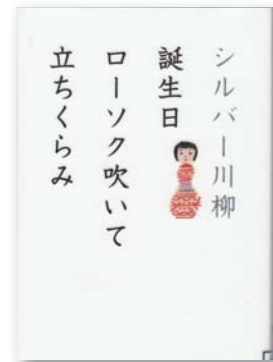 シルバー川柳
誕生日
ローソク吹いて
立ちくらみ